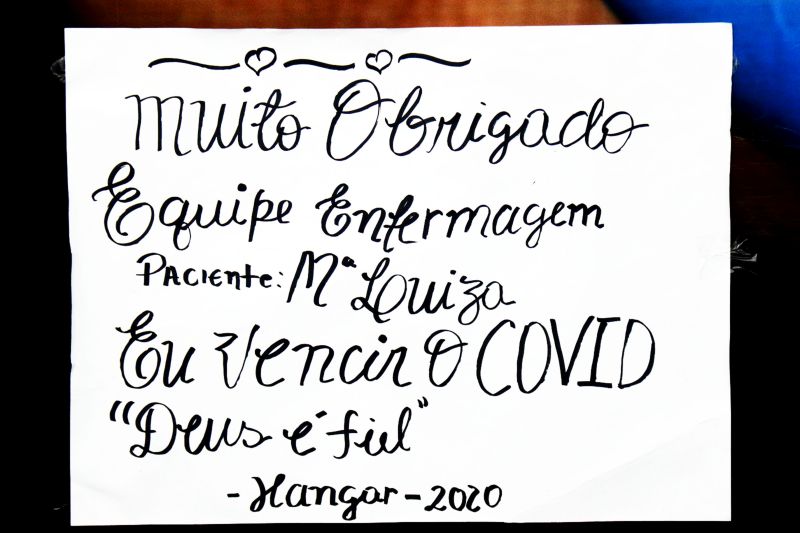 Muito Obrigado
Equipe Enfermagem
Paciente: Mª Louiza
Eu Vencir O COVID
"Deus é fiel"
- Hangar - 2020